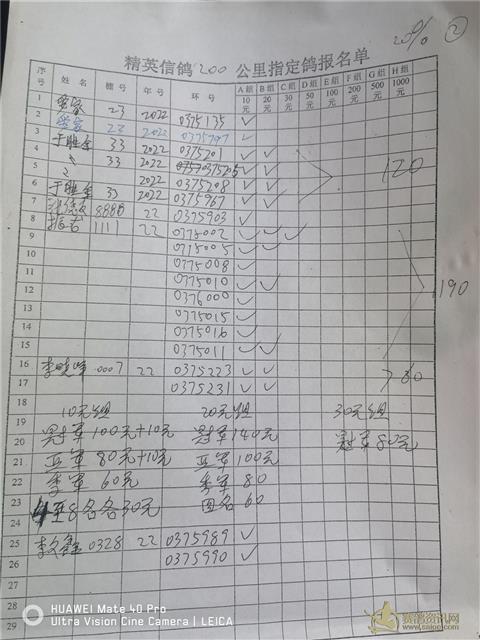 20% ②
精英信鸽200公里指定鸽报名单
序号 姓名 棚号 年号 环号 A组10元 B组20元 C组30元 D组50元 E组100元 F组200元 G组500元 H组1000元
1 23 2022 0375135 ✓
2 23 2022 0375797 ✓
3 于胜全 33 2022 0375201 ✓ ✓
4 33 2022 0375205 ✓ ✓
5 2022 0375208 ✓ ✓
6 于胜全 33 2022 0375967 ✓ ✓
120
7 8888 22 0375903 ✓
8 1111 22 0775002 ✓ ✓ ✓
9 0775005 ✓ ✓
10 0775008 ✓
11 0775010 ✓ ✓
12 0376000 ✓
13 0775015 ✓
14 0775016 ✓
15 0775011 ✓ ✓
190
16 李晓峰 0007 22 0375223 ✓ ✓
17 0375231 ✓ ✓
18
19 10元组 20元组 30元组
20 冠军100元+10元 冠军140元 冠军80元
21 亚军80元+10元 亚军100元
22 季军60元 季军80
23 4至8名各30元 四名60
24
25 0328 22 0375989 ✓
26 0375990 ✓
27
28
29
HUAWEI Mate 40 Pro
Ultra Vision Cine Camera | LEICA
赛鸽资讯网
www.saige.com